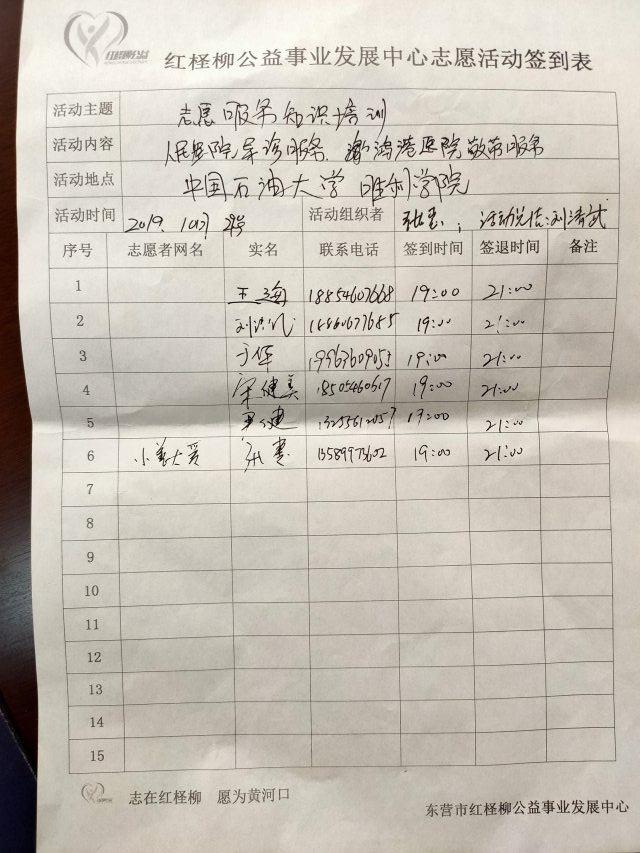 红柽柳公益
红柽柳公益事业发展中心志愿活动签到表
活动主题 志愿服务知识培训
活动内容 人民医院导诊服务、鸿港医院敬老服务
活动地点 中国石油大学胜利学院
活动时间 2019.10月 活动组织者
序号 志愿者网名 实名 联系电话 签到时间 签退时间 备注
1 王海 18854607668 19:00 21:00
2 19:00 21:00
3 于华 19963609053 19:00 21:00
4 宋健美 18505460617 19:00 21:00
5 19:00 21:00
6 13589973602 19:00 21:00
7
8
9
10
11
12
13
14
15
志在红柽柳 愿为黄河口
东营市红柽柳公益事业发展中心